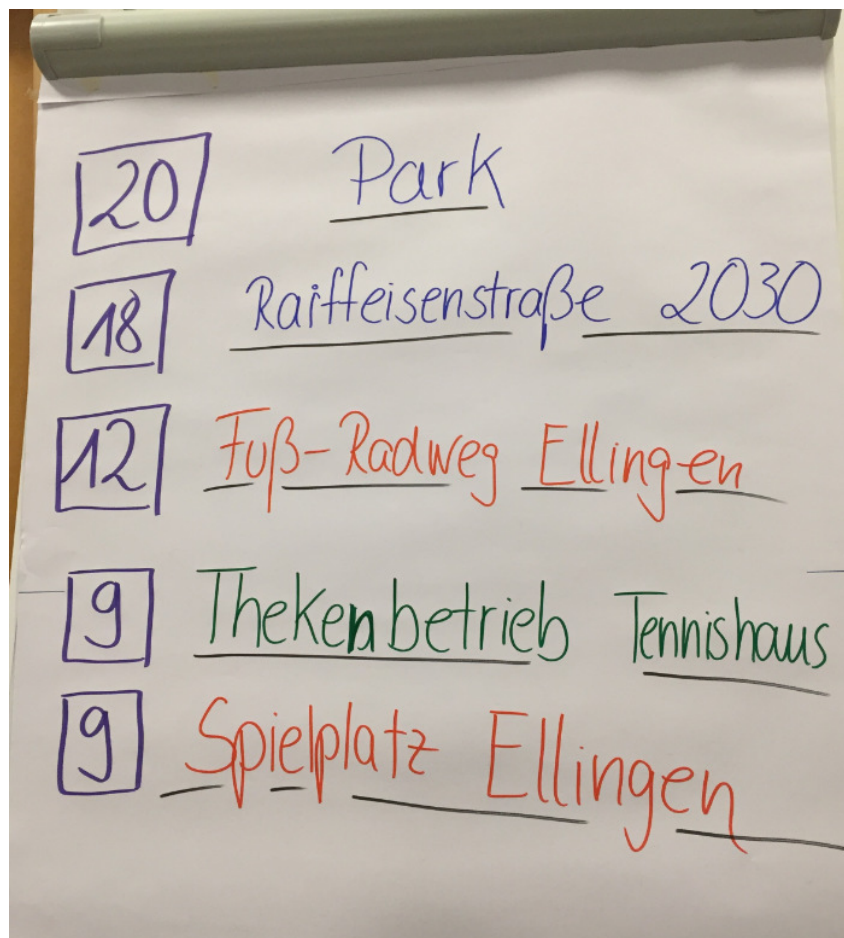 20 Park
18 Raiffeisenstraße 2030
12 Fuß-Radweg Ellingen
9 Thekenbetrieb Tennishaus
9 Spielplatz Ellingen